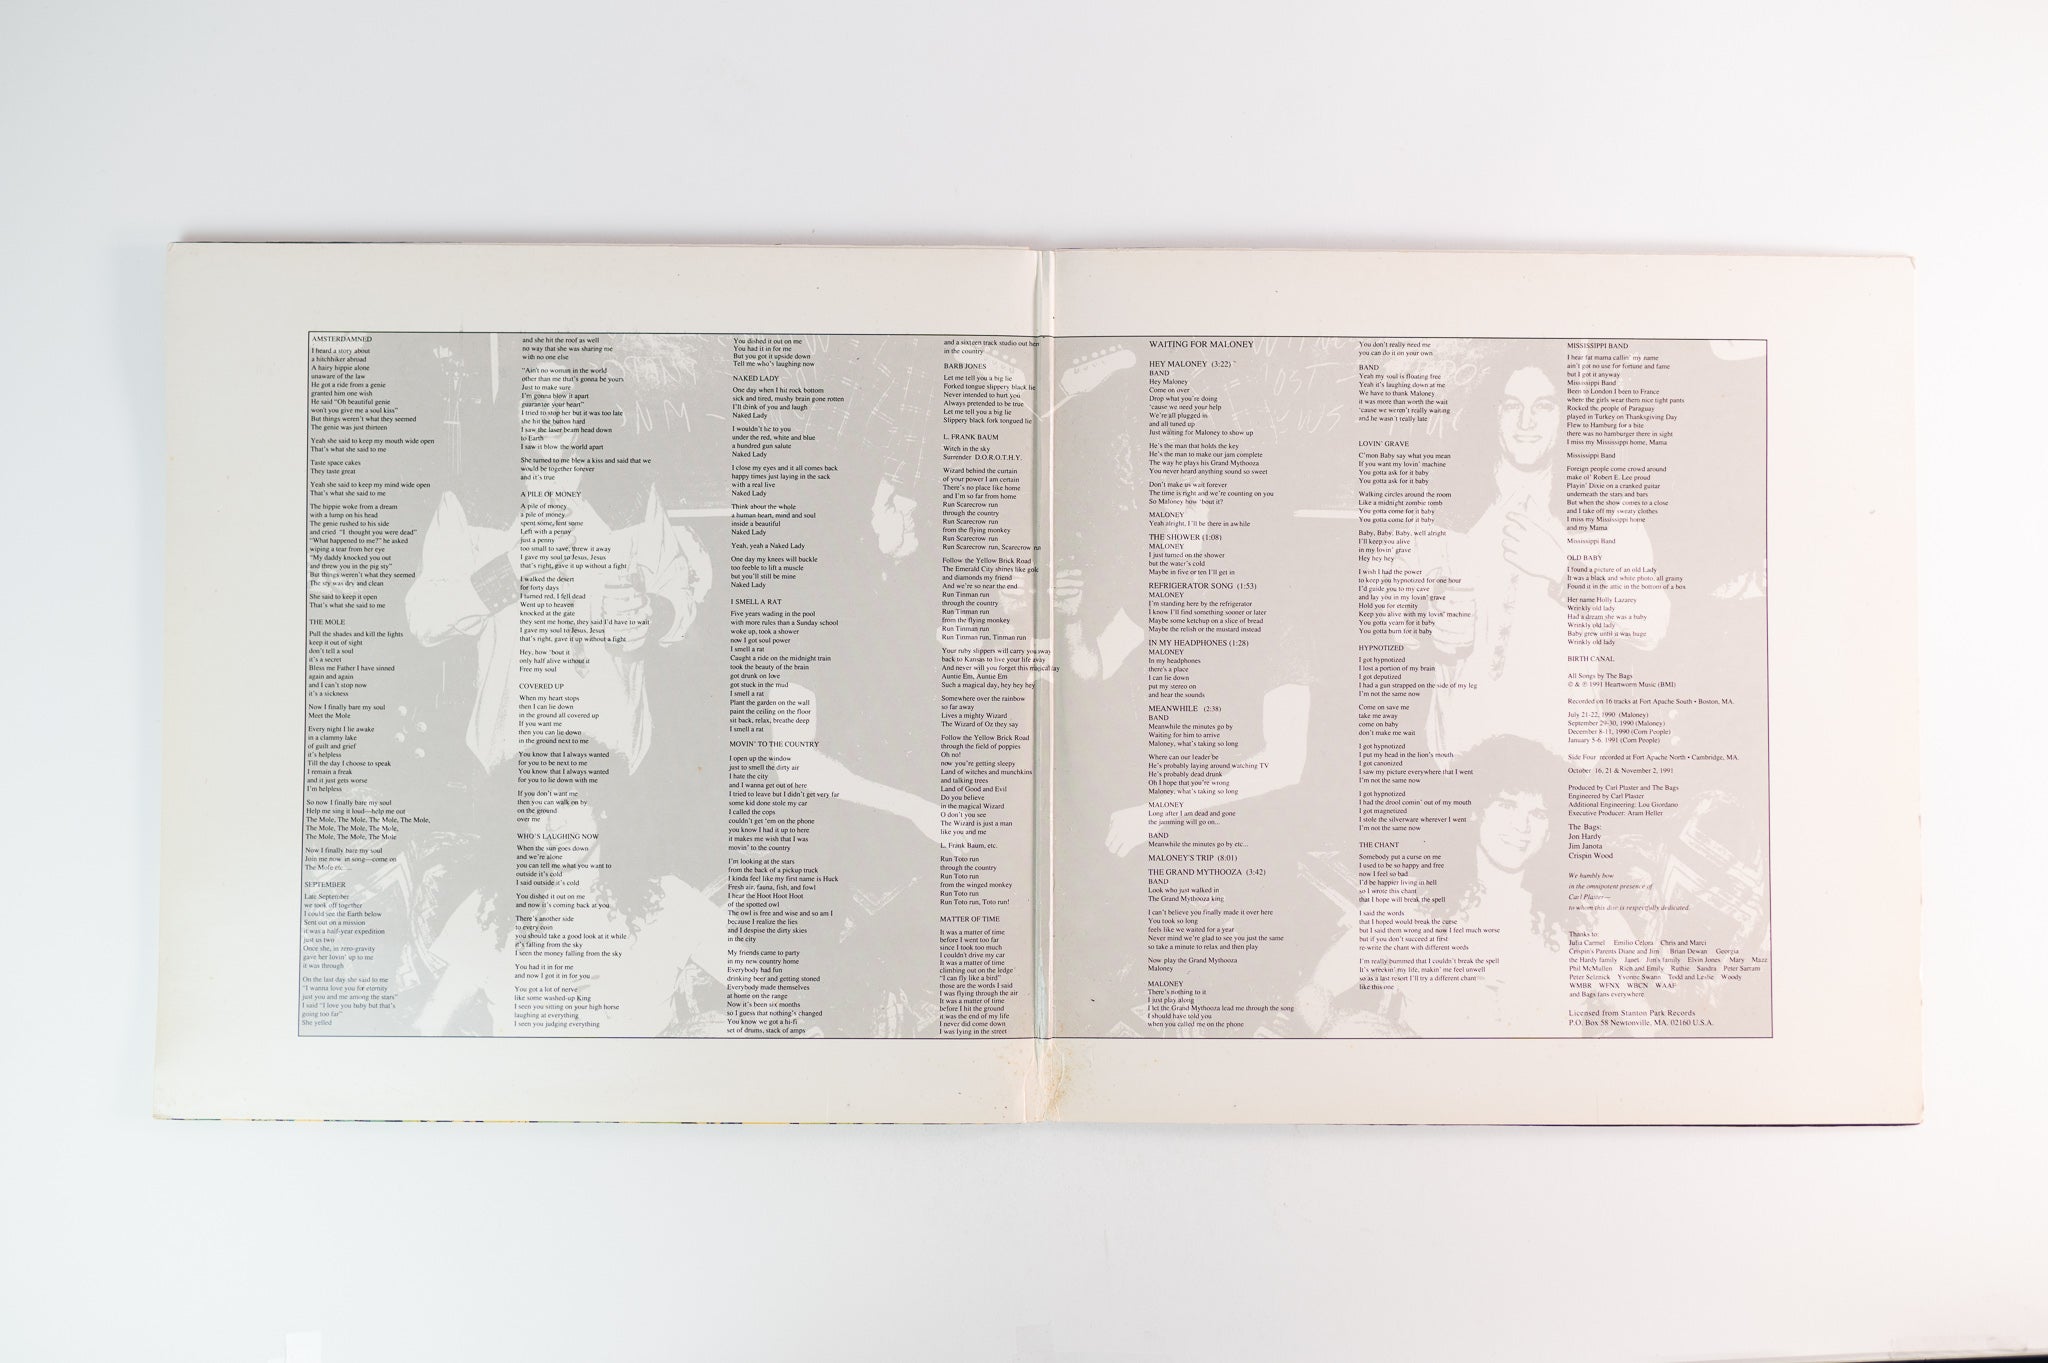 AMSTERDAMNED
I heard a story about
a hitchhiker abroad
A hairy hippie alone
unaware of the law
He got a ride from a genie
granted him one wish
He said "Oh beautiful genie
won't you give me a soul kiss"
But things weren't what they seemed
The genie was just thirteen
Yeah she said to keep my mouth wide open
That's what she said to me
Taste space cakes
They taste great
Yeah she said to keep my mind wide open
That's what she said to me
The hippie woke from a dream
with a lump on his head
The genie rushed to his side
and cried "I thought you were dead"
"What happened to me?" he asked
wiping a tear from her eye
"My daddy knocked you out
and threw you in the pig sty"
But things weren't what they seemed
The sty was dry and clean
She said to keep it open
That's what she said to me
THE MOLE
Pull the shades and kill the lights
keep it out of sight
don't tell a soul
it's a secret
Bless me Father I have sinned
again and again
and I can't stop now
it's a sickness
Now I finally bare my soul
Meet the Mole
Every night I lie awake
in a clammy lake
of guilt and grief
it's helpless
Till the day I choose to speak
I remain a freak
and it just gets worse
I'm helpless
So now I finally bare my soul
Help me sing it loud—help me out
The Mole, The Mole, The Mole, The Mole,
The Mole, The Mole, The Mole,
The Mole, The Mole, The Mole
Now I finally bare my soul
Join me now in song—come on
The Mole etc. ...
SEPTEMBER
Late September
we took off together
I could see the Earth below
Sent out on a mission
it was a half-year expedition
just us two
Once she, in zero-gravity
gave her lovin' up to me
it was through
On the last day she said to me
"I wanna love you for eternity
just you and me among the stars"
I said "I love you baby but that's
going too far"
She yelled
and she hit the roof as well
no way that she was sharing me
with no one else
"Ain't no woman in the world
other than me that's gonna be yours
Just to make sure
I'm gonna blow it apart
guarantee your heart"
I tried to stop her but it was too late
she hit the button hard
I saw the laser beam head down
to Earth
I saw it blow the world apart
She turned to me blew a kiss and said that we
would be together forever
and it's true
A PILE OF MONEY
A pile of money
a pile of money
spent some, lent some
Left with a penny
just a penny
too small to save, threw it away
I gave my soul to Jesus, Jesus
that's right, gave it up without a fight
I walked the desert
for forty days
I turned red, I fell dead
Went up to heaven
knocked at the gate
they sent me home, they said I'd have to wait
I gave my soul to Jesus, Jesus
that's right, gave it up without a fight
Hey, how 'bout it
only half alive without it
Free my soul
COVERED UP
When my heart stops
then I can lie down
in the ground all covered up
If you want me
then you can lie down
in the ground next to me
You know that I always wanted
for you to be next to me
You know that I always wanted
for you to lie down with me
If you don't want me
then you can walk on by
on the ground
over me
WHO'S LAUGHING NOW
When the sun goes down
and we're alone
you can tell me what you want to
outside it's cold
I said outside it's cold
You dished it out on me
and now it's coming back at you
There's another side
to every coin
you should take a good look at it while
it's falling from the sky
I seen the money falling from the sky
You had it in for me
and now I got it in for you
You got a lot of nerve
like some washed-up King
I seen you sitting on your high horse
laughing at everything
I seen you judging everything
You dished it out on me
You had it in for me
But you got it upside down
Tell me who's laughing now
NAKED LADY
One day when I hit rock bottom
sick and tired, mushy brain gone rotten
I'll think of you and laugh
Naked Lady
I wouldn't lie to you
under the red, white and blue
a hundred gun salute
Naked Lady
I close my eyes and it all comes back
happy times just laying in the sack
with a real live
Naked Lady
Think about the whole
a human heart, mind and soul
inside a beautiful
Naked Lady
Yeah, yeah a Naked Lady
One day my knees will buckle
too feeble to lift a muscle
but you'll still be mine
Naked Lady
I SMELL A RAT
Five years wading in the pool
with more rules than a Sunday school
woke up, took a shower
now I got soul power
I smell a rat
Caught a ride on the midnight train
took the beauty of the brain
got drunk on love
got stuck in the mud
I smell a rat
Plant the garden on the wall
paint the ceiling on the floor
sit back, relax, breathe deep
I smell a rat
MOVIN' TO THE COUNTRY
I open up the window
just to smell the dirty air
I hate the city
and I wanna get out of here
I tried to leave but I didn't get very far
some kid done stole my car
I called the cops
couldn't get 'em on the phone
you know I had it up to here
it makes me wish that I was
movin' to the country
I'm looking at the stars
from the back of a pickup truck
I kinda feel like my first name is Huck
Fresh air, fauna, fish, and fowl
I hear the Hoot Hoot Hoot
of the spotted owl
The owl is free and wise and so am I
because I realize the lies
and I despise the dirty skies
in the city
My friends came to party
in my new country home
Everybody had fun
drinking beer and getting stoned
Everybody made themselves
at home on the range
Now it's been six months
so I guess that nothing's changed
You know we got a hi-fi
set of drums, stack of amps
and a sixteen track studio out here
in the country
BARB JONES
Let me tell you a big lie
Forked tongue slippery black lie
Never intended to hurt you
Always pretended to be true
Let me tell you a big lie
Slippery black fork tongued lie
L. FRANK BAUM
Witch in the sky
Surrender D.O.R.O.T.H.Y.
Wizard behind the curtain
of your power I am certain
There's no place like home
and I'm so far from home
Run Scarecrow run
through the country
Run Scarecrow run
from the flying monkey
Run Scarecrow run
Run Scarecrow run, Scarecrow run
Follow the Yellow Brick Road
The Emerald City shines like gold
and diamonds my friend
And we're so near the end
Run Tinman run
through the country
Run Tinman run
from the flying monkey
Run Tinman run
Run Tinman run, Tinman run
Your ruby slippers will carry you away
back to Kansas to live your life away
And never will you forget this magical day
Auntie Em, Auntie Em
Such a magical day, hey hey hey
Somewhere over the rainbow
so far away
Lives a mighty Wizard
The Wizard of Oz they say
Follow the Yellow Brick Road
through the field of poppies
Oh no!
now you're getting sleepy
Land of witches and munchkins
and talking trees
Land of Good and Evil
Do you believe
in the magical Wizard
O don't you see
The Wizard is just a man
like you and me
L. Frank Baum, etc.
Run Toto run
through the country
Run Toto run
from the winged monkey
Run Toto run
Run Toto run, Toto run!
MATTER OF TIME
It was a matter of time
before I went too far
since I took too much
I couldn't drive my car
It was a matter of time
climbing out on the ledge
"I can fly like a bird"
those are the words I said
I was flying through the air
It was a matter of time
before I hit the ground
it was the end of my life
I never did come down
I was lying in the street
WAITING FOR MALONEY
HEY MALONEY (3:22)
BAND
Hey Maloney
Come on over
Drop what you're doing
'cause we need your help
We're all plugged in
and all tuned up
Just waiting for Maloney to show up
He's the man that holds the key
He's the man to make our jam complete
The way he plays his Grand Mythooza
You never heard anything sound so sweet
Don't make us wait forever
The time is right and we're counting on you
So Maloney how 'bout it?
MALONEY
Yeah alright, I'll be there in awhile
THE SHOWER (1:08)
MALONEY
I just turned on the shower
but the water's cold
Maybe in five or ten I'll get in
REFRIGERATOR SONG (1:53)
MALONEY
I'm standing here by the refrigerator
I know I'll find something sooner or later
Maybe some ketchup on a slice of bread
Maybe the relish or the mustard instead
IN MY HEADPHONES (1:28)
MALONEY
In my headphones
there's a place
I can lie down
put my stereo on
and hear the sounds
MEANWHILE (2:38)
BAND
Meanwhile the minutes go by
Waiting for him to arrive
Maloney, what's taking so long
Where can our leader be
He's probably laying around watching TV
He's probably dead drunk
Oh I hope that you're wrong
Maloney, what's taking so long
MALONEY
Long after I am dead and gone
the jamming will go on...
BAND
Meanwhile the minutes go by etc...
MALONEY'S TRIP (8:01)
THE GRAND MYTHOOZA (3:42)
BAND
Look who just walked in
The Grand Mythooza king
I can't believe you finally made it over here
You took so long
feels like we waited for a year
Never mind we're glad to see you just the same
so take a minute to relax and then play
Now play the Grand Mythooza
Maloney
MALONEY
There's nothing to it
I just play along
I let the Grand Mythooza lead me through the song
I should have told you
when you called me on the phone
You don't really need me
you can do it on your own
BAND
Yeah my soul is floating free
Yeah it's laughing down at me
We have to thank Maloney
it was more than worth the wait
'cause we weren't really waiting
and he wasn't really late
LOVIN' GRAVE
C'mon Baby say what you mean
If you want my lovin' machine
You gotta ask for it baby
You gotta ask for it baby
Walking circles around the room
Like a midnight zombie tomb
You gotta come for it baby
You gotta come for it baby
Baby, Baby, Baby, well alright
I'll keep you alive
in my lovin' grave
Hey hey hey
I wish I had the power
to keep you hypnotized for one hour
I'd guide you to my cave
and lay you in my lovin' grave
Hold you for eternity
Keep you alive with my lovin' machine
You gotta yearn for it baby
You gotta burn for it baby
HYPNOTIZED
I got hypnotized
I lost a portion of my brain
I got deputized
I had a gun strapped on the side of my leg
I'm not the same now
Come on save me
take me away
come on baby
don't make me wait
I got hypnotized
I put my head in the lion's mouth
I got canonized
I saw my picture everywhere that I went
I'm not the same now
I got hypnotized
I had the drool comin' out of my mouth
I got magnetized
I stole the silverware wherever I went
I'm not the same now
THE CHANT
Somebody put a curse on me
I used to be so happy and free
now I feel so bad
I'd be happier living in hell
so I wrote this chant
that I hope will break the spell
I said the words
that I hoped would break the curse
but I said them wrong and now I feel much worse
but if you don't succeed at first
re-write the chant with different words
I'm really bummed that I couldn't break the spell
It's wreckin' my life, makin' me feel unwell
so as a last resort I'll try a different chant
like this one
MISSISSIPPI BAND
I hear fat mama callin' my name
ain't got no use for fortune and fame
but I got it anyway
Mississippi Band
Been to London I been to France
where the girls wear them nice tight pants
Rocked the people of Paraguay
played in Turkey on Thanksgiving Day
Flew to Hamburg for a bite
there was no hamburger there in sight
I miss my Mississippi home, Mama
Mississippi Band
Foreign people come crowd around
make ol' Robert E. Lee proud
Playin' Dixie on a cranked guitar
underneath the stars and bars
But when the show comes to a close
and I take off my sweaty clothes
I miss my Mississippi home
and my Mama
Mississippi Band
OLD BABY
I found a picture of an old Lady
It was a black and white photo, all grainy
Found it in the attic in the bottom of a box
Her name Holly Lazarey
Wrinkly old lady
Had a dream she was a baby
Wrinkly old lady
Baby grew until it was huge
Wrinkly old lady
BIRTH CANAL
All Songs by The Bags
© & ℗ 1991 Heartworm Music (BMI)
Recorded on 16 tracks at Fort Apache South • Boston, MA.
July 21-22, 1990 (Maloney)
September 29-30, 1990 (Maloney)
December 8-11, 1990 (Corn People)
January 5-6, 1991 (Corn People)
Side Four recorded at Fort Apache North • Cambridge, MA.
October 16, 21 & November 2, 1991
Produced by Carl Plaster and The Bags
Engineered by Carl Plaster
Additional Engineering: Lou Giordano
Executive Producer: Aram Heller
The Bags:
Jon Hardy
Jim Janota
Crispin Wood
We humbly bow
in the omnipotent presence of
Carl Plaster—
to whom this disc is respectfully dedicated.
Thanks to:
Julia Carmel Emilio Celora Chris and Marci
Crispin's Parents Diane and Jim Brian Dewan Georgia
the Hardy family Janet Jim's family Elvin Jones Mary Mazz
Phil McMullen Rich and Emily Ruthie Sandra Peter Sarram
Peter Selznick Yvonne Swann Todd and Leslie Woody
WMBR WFNX WBCN WAAF
and Bags fans everywhere
Licensed from Stanton Park Records
P.O. Box 58 Newtonville, MA. 02160 U.S.A.